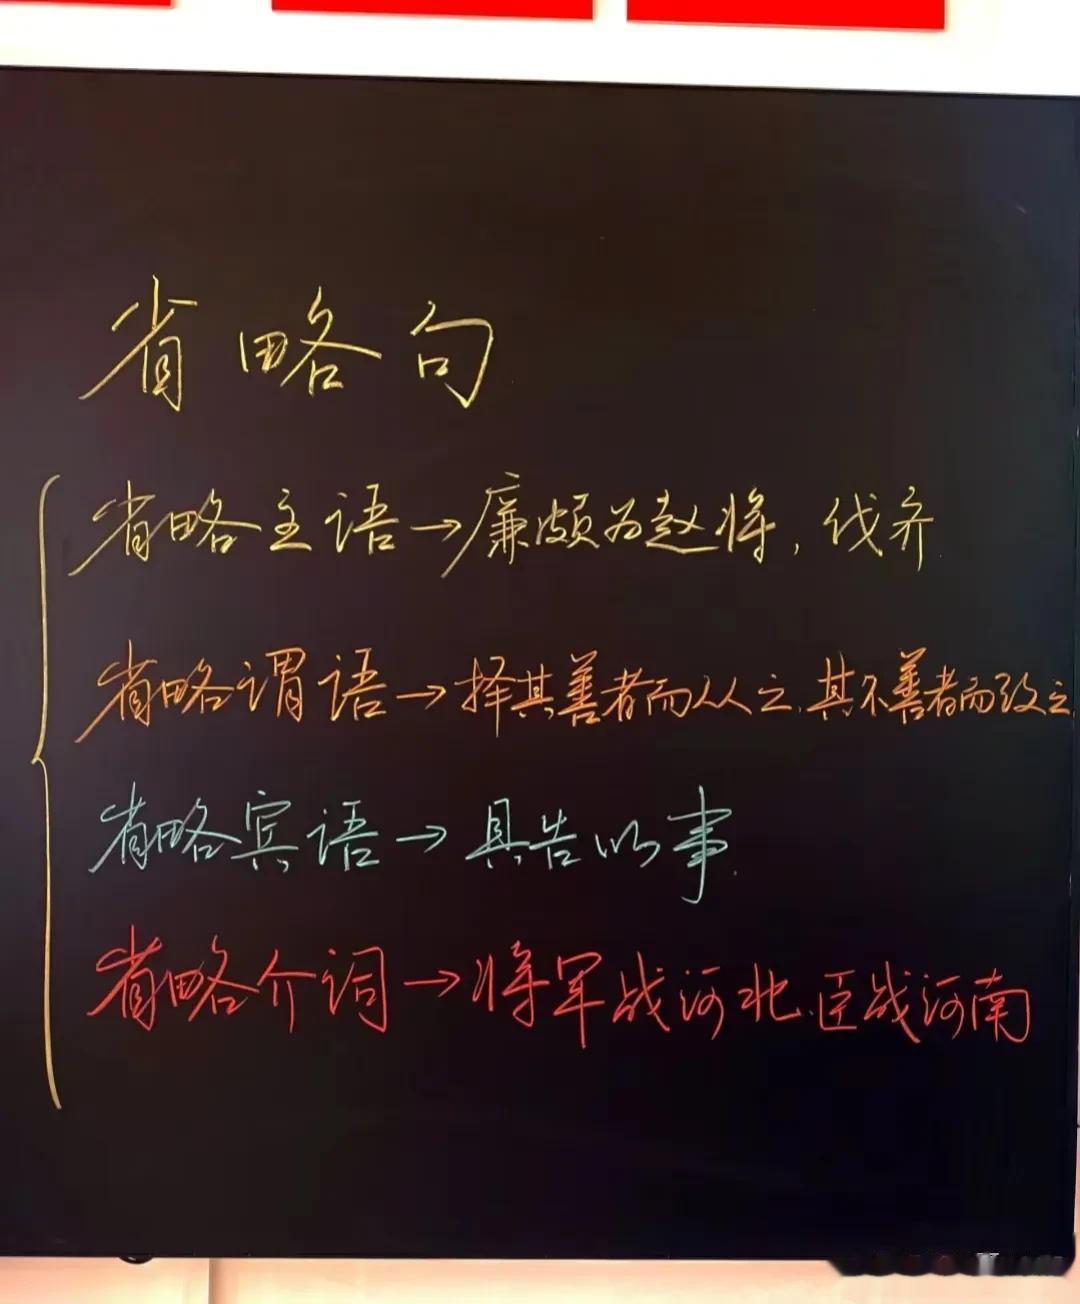 省略句
省略主语→廉颇为赵将，伐齐
省略谓语→择其善者而从之，其不善者而改之
省略宾语→具告以事.
省略介词→将军战河北，臣战河南